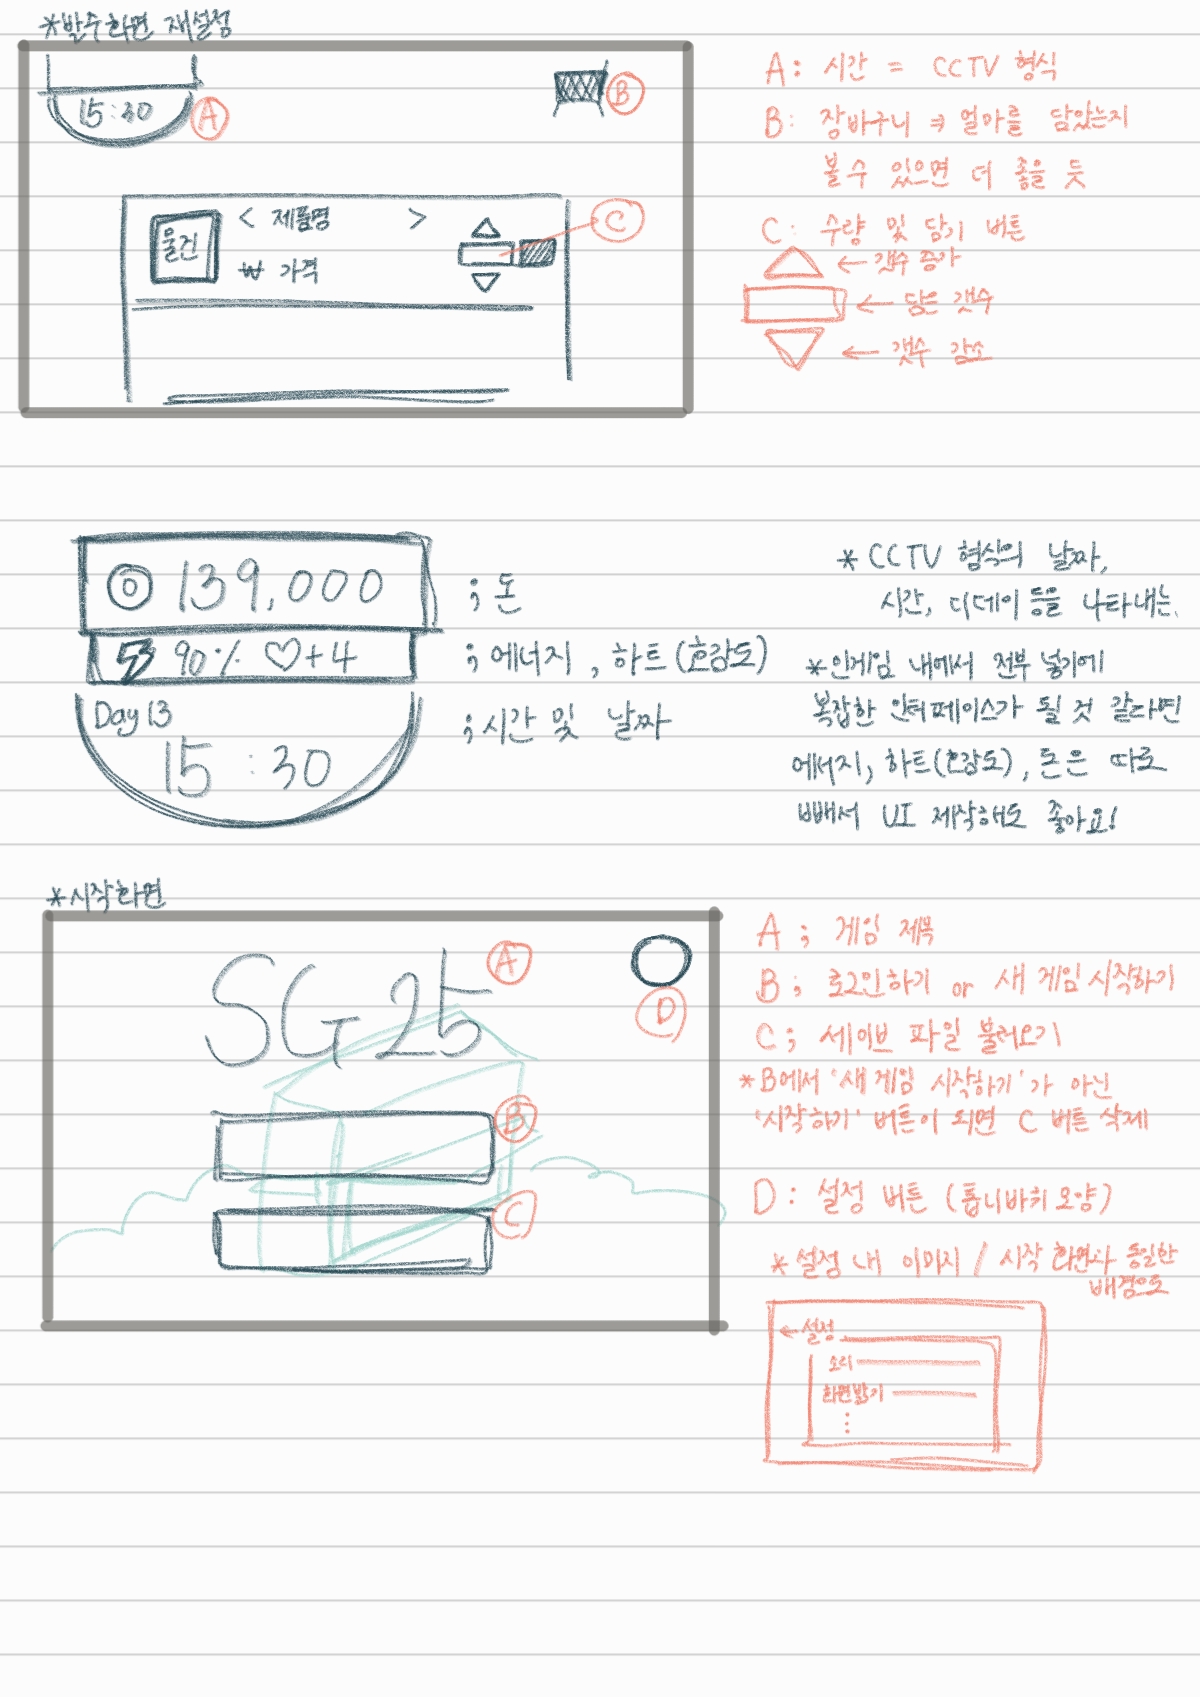 *발주화면 재설정
15:30 A
B
물건 < 제품명 >
₩ 가격
C
A: 시간 = CCTV 형식
B: 장바구니 ⇒ 얼마를 담았는지
볼 수 있으면 더 좋을 듯
C: 수량 및 담기 버튼
← 갯수 증가
← 담은 갯수
← 갯수 감소
139,000 ; 돈
90% ♡+4 ; 에너지, 하트(호감도)
Day 13
15 : 30 ; 시간 및 날짜
* CCTV 형식의 날짜,
시간, 디데이 등을 나타내는.
*인게임 내에서 전부 넣기에
복잡한 인터페이스가 될 것 같다면
에너지, 하트(호감도), 돈은 따로
빼서 UI 제작해도 좋아요!
*시작화면
SG25 A
D
B
C
A ; 게임 제목
B ; 로그인하기 or 새 게임 시작하기
C ; 세이브 파일 불러오기
*B에서 '새 게임 시작하기'가 아닌
'시작하기' 버튼이 되면 C 버튼 삭제
D : 설정 버튼 (톱니바퀴 모양)
*설정 내 이미지 / 시작 화면과 동일한
배경으로
← 설정
소리
화면밝기
⋮